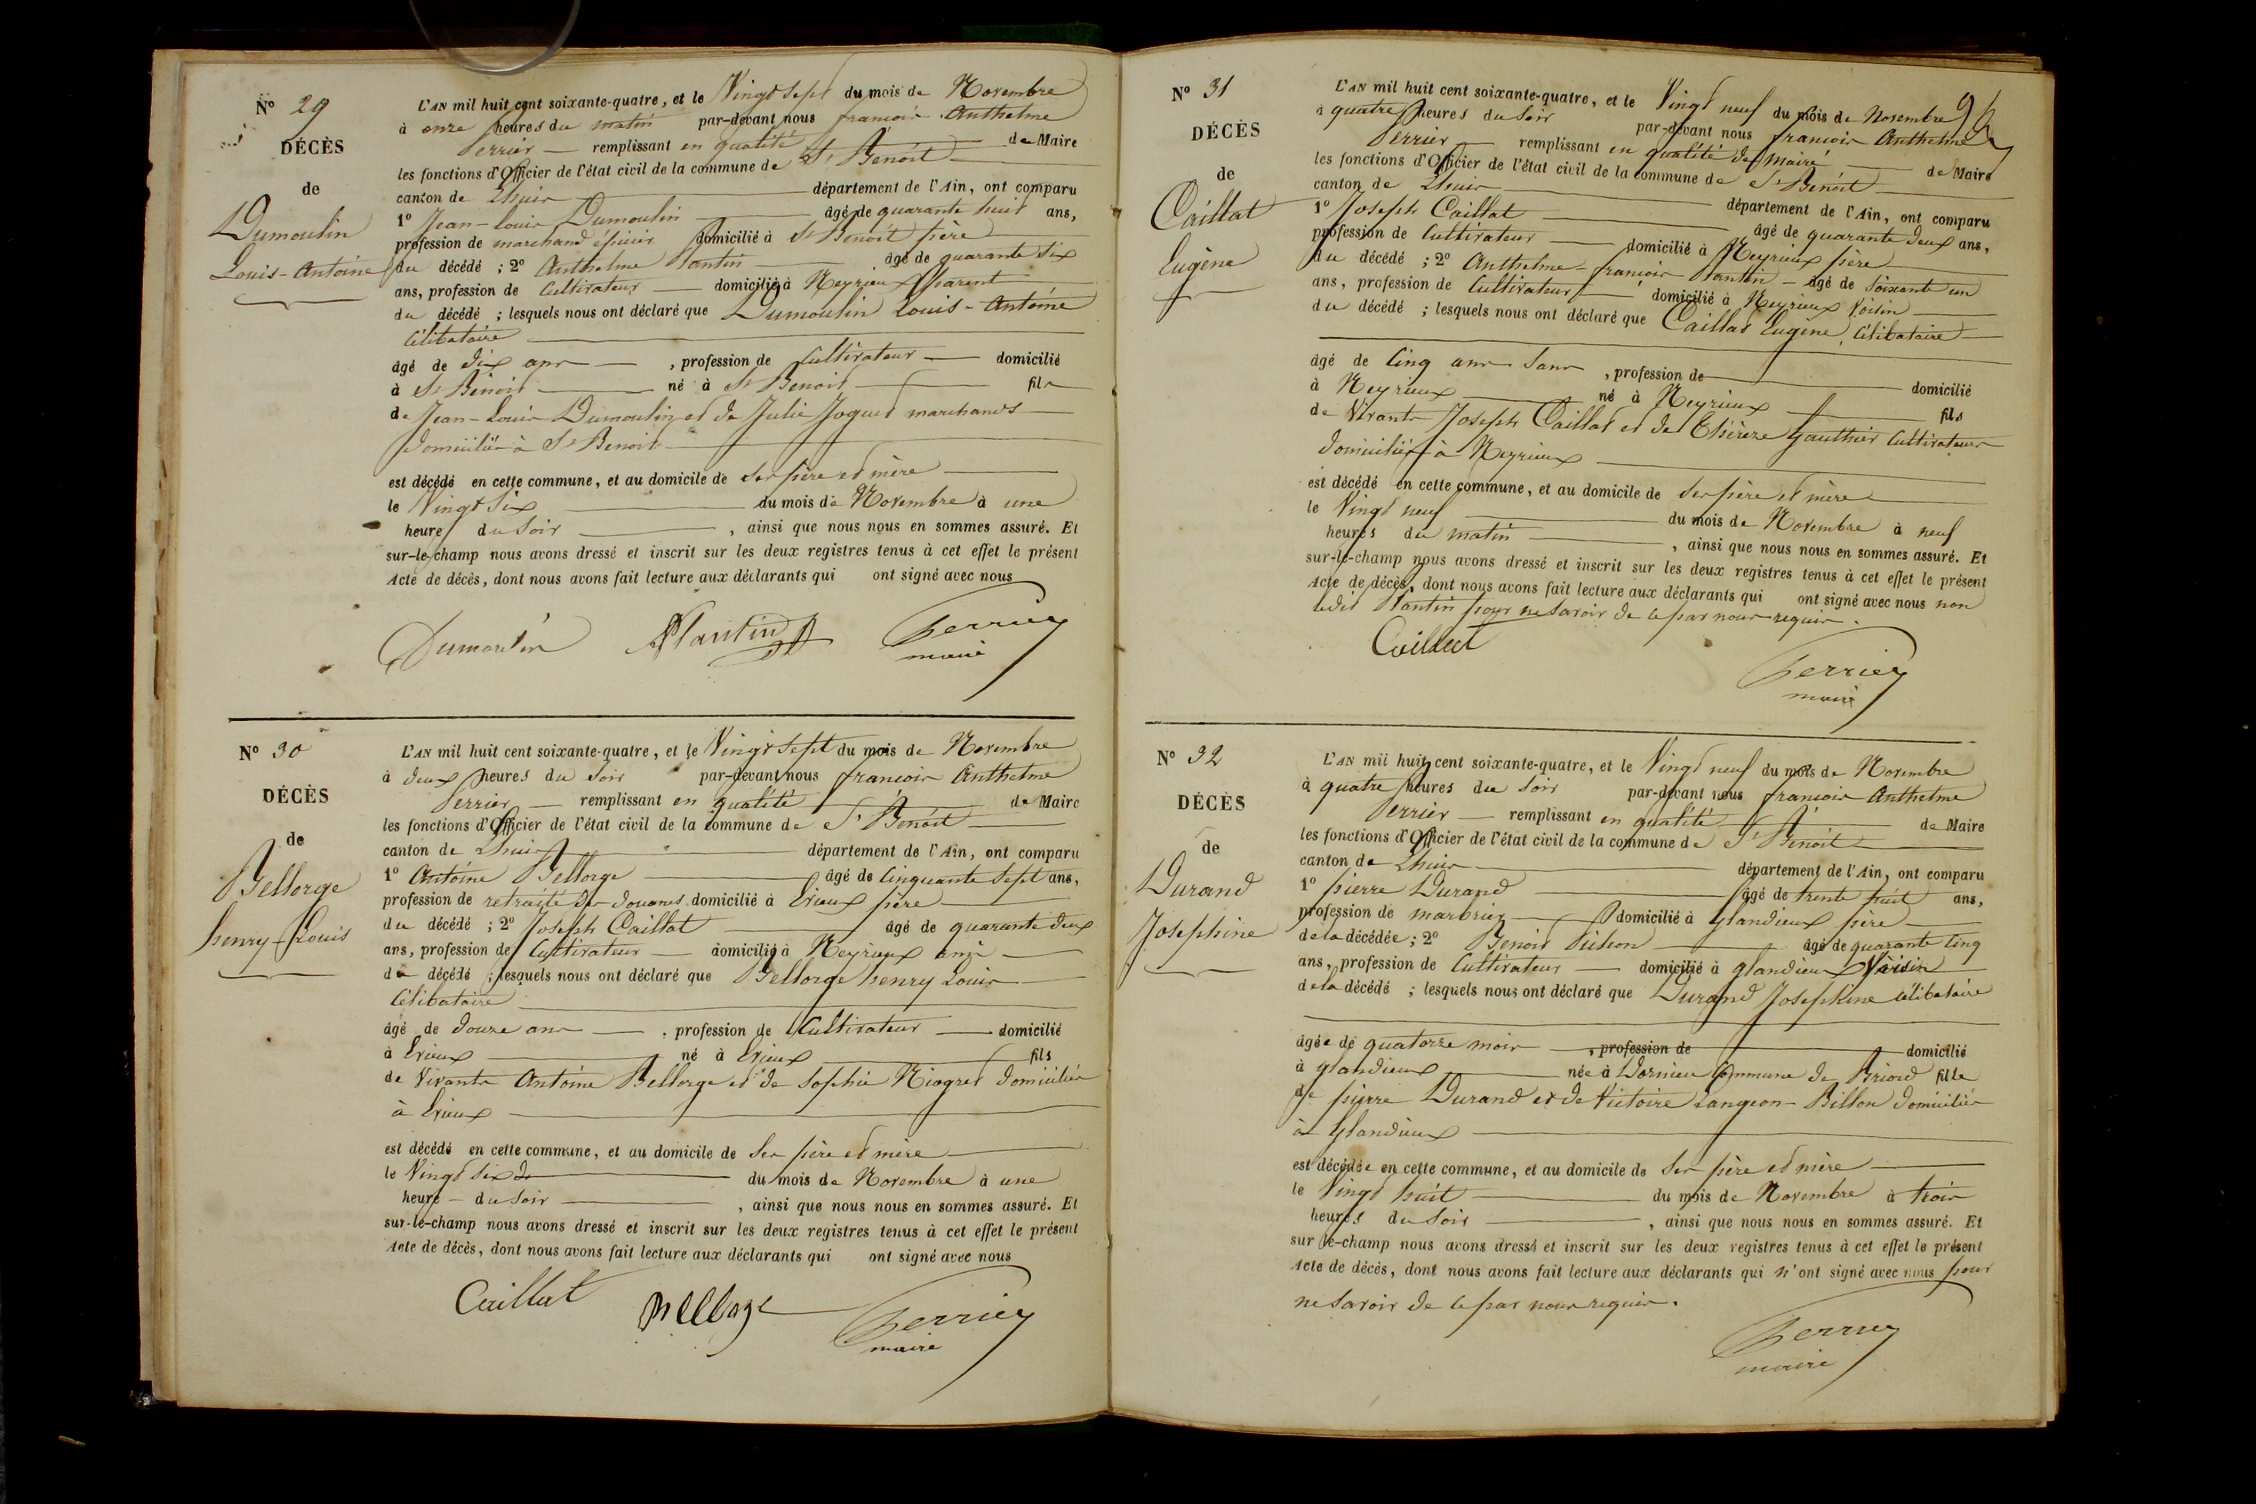 Nº 29
DÉCÈS
de
Dumoulin
Louis-Antoine
L'AN mil huit cent soixante-quatre, et le Vingt Sept du mois de Novembre
à onze heures du matin par-devant nous françois Anthelme
Perrier remplissant en qualité de Maire
les fonctions d'Officier de l'état civil de la commune de St Benoit
canton de Lhuis département de l'Ain, ont comparu
1º Jean-Louis Dumoulin âgé de quarante huit ans,
profession de marchand épicier domicilié à St Benoit père
du décédé ; 2º Anthelme Plantin âgé de quarante six
ans, profession de Cultivateur domicilié à Neyrieux parent
du décédé ; lesquels nous ont déclaré que Dumoulin Louis-Antoine
Célibataire
âgé de dix ans , profession de Cultivateur domicilié
à St Benoit né à St Benoit fils
de Jean-Louis Dumoulin et de Julie Joguet marchands
domiciliés à St Benoit
est décédé en cette commune, et au domicile de ses père et mère
le Vingt Six du mois de Novembre à une
heure du soir , ainsi que nous nous en sommes assuré. Et
sur-le-champ nous avons dressé et inscrit sur les deux registres tenus à cet effet le présent
Acte de décès, dont nous avons fait lecture aux déclarants qui ont signé avec nous
Dumoulin Plantin Perrier
maire
Nº 30
DÉCÈS
de
Bellorge
henry-Louis
L'AN mil huit cent soixante-quatre, et le Vingt Sept du mois de Novembre
à deux heures du soir par-devant nous françois Anthelme
Perrier remplissant en qualité de Maire
les fonctions d'Officier de l'état civil de la commune de St Benoit
canton de Lhuis département de l'Ain, ont comparu
1º Antoine Bellorge âgé de cinquante sept ans,
profession de retraité des douanes domicilié à Evieux père
du décédé ; 2º Joseph Caillat âgé de quarante deux
ans, profession de Cultivateur domicilié à Neyrieux ami
du décédé ; lesquels nous ont déclaré que Bellorge henry Louis
Célibataire
âgé de douze ans , profession de Cultivateur domicilié
à Evieux né à Evieux fils
de Vivants Antoine Bellorge et de Sophie Niogret domiciliés
à Evieux
est décédé en cette commune, et au domicile de ses père et mère
le Vingt six du mois de Novembre à une
heure du soir , ainsi que nous nous en sommes assuré. Et
sur-le-champ nous avons dressé et inscrit sur les deux registres tenus à cet effet le présent
Acte de décès, dont nous avons fait lecture aux déclarants qui ont signé avec nous
Caillat Perrier
maire
Nº 31
DÉCÈS
de
Caillat
Eugène
L'AN mil huit cent soixante-quatre, et le Vingt neuf du mois de Novembre
à quatre heures du soir par-devant nous françois Anthelme
Perrier remplissant en qualité de maire de Maire
les fonctions d'Officier de l'état civil de la commune de St Benoit
canton de Lhuis département de l'Ain, ont comparu
1º Joseph Caillat âgé de quarante deux ans,
profession de Cultivateur domicilié à Neyrieux père
du décédé ; 2º Anthelme-françois Plantin âgé de soixante un
ans, profession de Cultivateur domicilié à Neyrieux Voisin
du décédé ; lesquels nous ont déclaré que Caillat Eugène, Célibataire
âgé de cinq ans sans , profession de domicilié
à Neyrieux né à Neyrieux fils
de Vivants Joseph Caillat et de Thérèze Gauthier Cultivateurs
domiciliés à Neyrieux
est décédé en cette commune, et au domicile de ses père et mère
le Vingt neuf du mois de Novembre à neuf
heures du matin , ainsi que nous nous en sommes assuré. Et
sur-le-champ nous avons dressé et inscrit sur les deux registres tenus à cet effet le présent
Acte de décès, dont nous avons fait lecture aux déclarants qui ont signé avec nous non
ledit Plantin pour ne savoir de ce par nous requis.
Caillat
Perrier
maire
Nº 32
DÉCÈS
de
Durand
Josephine
L'AN mil huit cent soixante-quatre, et le Vingt neuf du mois de Novembre
à quatre heures du soir par-devant nous françois Anthelme
Perrier remplissant en qualité de Maire
les fonctions d'Officier de l'état civil de la commune de St Benoit
canton de Lhuis département de l'Ain, ont comparu
1º pierre Durand âgé de trente huit ans,
profession de marbrier domicilié à glandieux père
de la décédée ; 2º Benoit Pichon âgé de quarante cinq
ans, profession de Cultivateur domicilié à glandieux Voisin
de la décédé ; lesquels nous ont déclaré que Durand Josephine célibataire
âgée de quatorze mois , profession de domicilié
à glandieux née à Dornieu Commune de Briord fille
de pierre Durand et de Victoire Langeon-Billon domiciliés
à Glandieux
est décédée en cette commune, et au domicile de ses père et mère
le Vingt huit du mois de Novembre à trois
heures du soir , ainsi que nous nous en sommes assuré. Et
sur le-champ nous avons dressé et inscrit sur les deux registres tenus à cet effet le présent
Acte de décès, dont nous avons fait lecture aux déclarants qui n'ont signé avec nous pour
ne savoir de ce par nous requis.
Perrier
maire